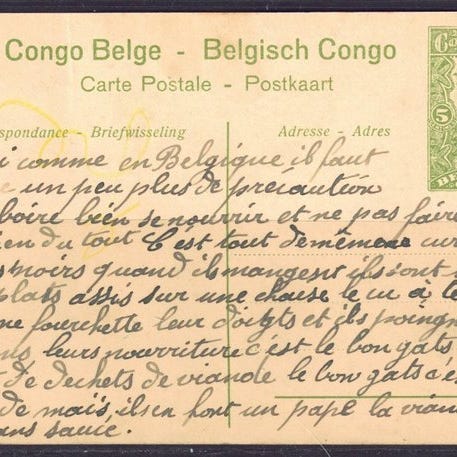 Congo Belge - Belgisch Congo
Carte Postale - Postkaart
spondance - Briefwisseling
Adresse - Adres
5
i comme en Belgique il faut
un peu plus de précaution
boire bien se nourrir et ne pas faire
en du tout C'est tout de même
noirs quand ils mangent ils sont
plats assis sur une chaise le cu à te
ne fourchette leur doigts et ils
leurs nourriture c'est le bon gats
de dechets de viande le bon gats c'e
de maïs, ils en font un pape la vian
ans sauce.